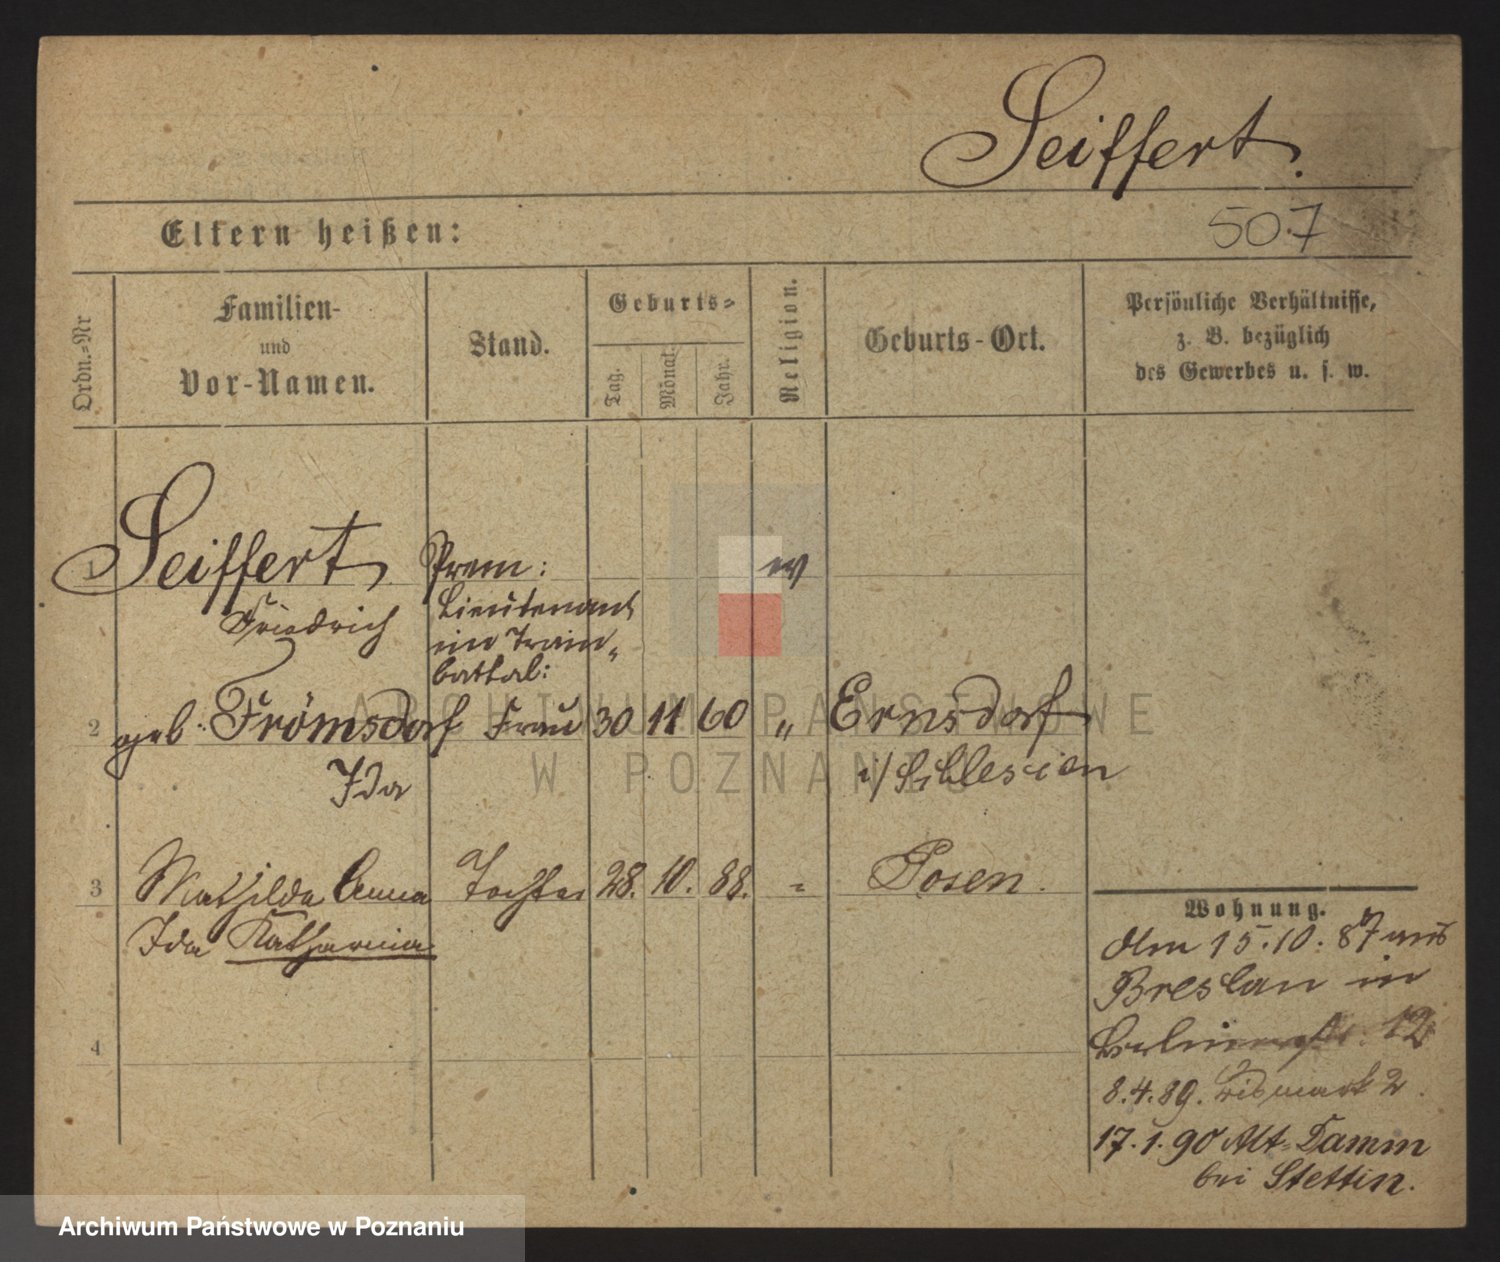 Seiffert.
Eltern heißen:
507
Ordn.-Nr
Familien-
und
Vor-Namen.
Stand.
Geburts-
Tag.
Monat.
Jahr.
Religion.
Geburts-Ort.
Persönliche Verhältnisse,
z. B. bezüglich
des Gewerbes u. s. w.
1 Seiffert Prem: ev
Friedrich Lieutenant
im Train-
battal:
2 geb. Frömsdorf Frau 30 11 60 " Ernsdorf
Ida i/Schlesien
3 Mathilda Anna Tochter 28. 10. 88. " Posen.
Ida Katharina
4
Wohnung.
Am 15.10.87 aus
Breslau in
Berlinerstr. 12
8.4.89. Bismark 2.
17.1.90 Alt-Damm
bei Stettin.
ARCHIWUM PAŃSTWOWE
W POZNANIU
Archiwum Państwowe w Poznaniu